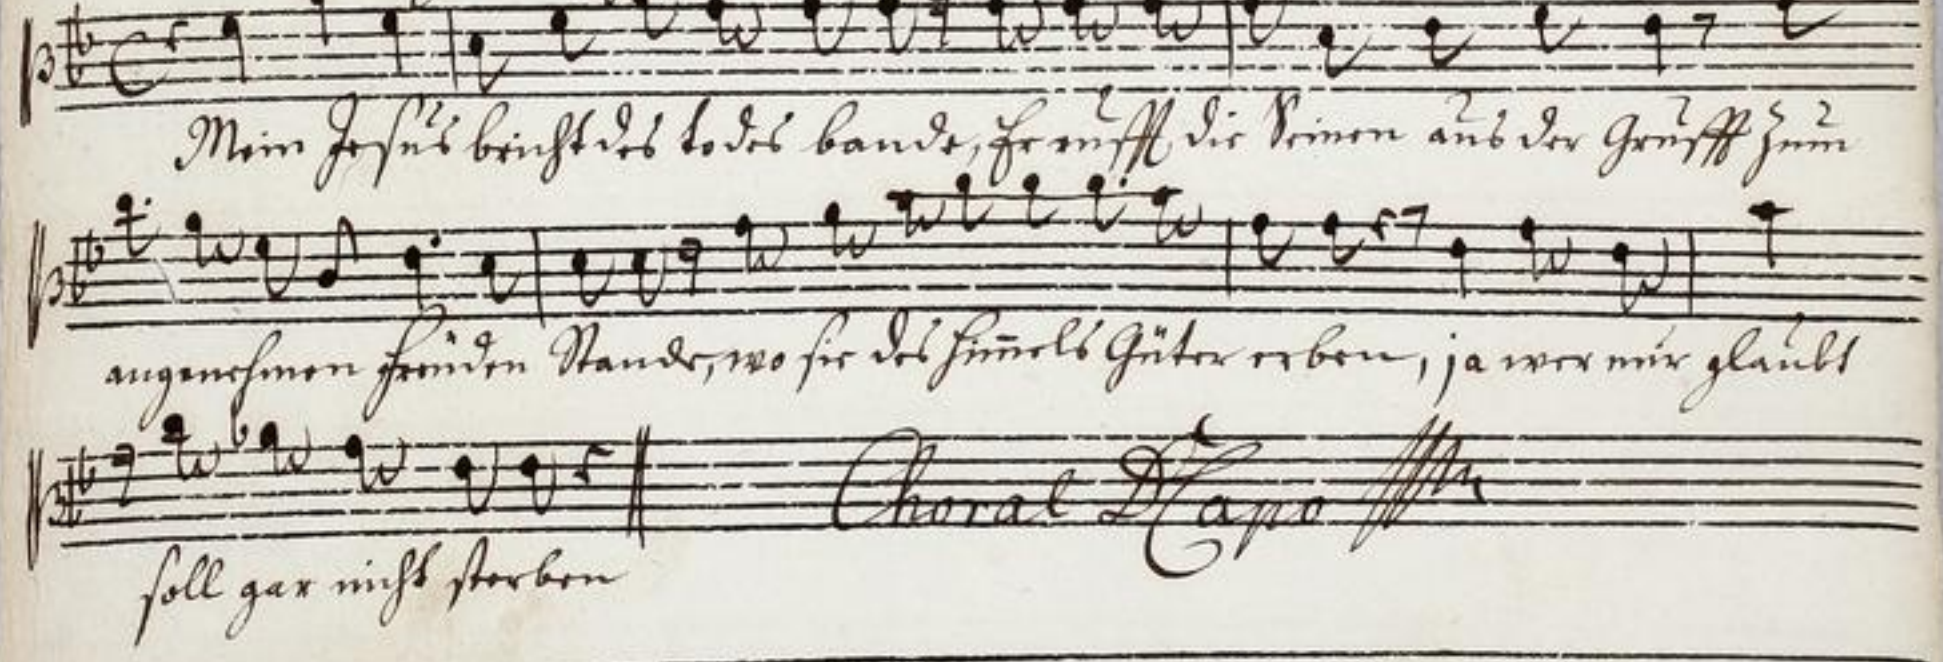 Mein Jesus bricht des todes bande, Er rufft die Seinen aus der Grufft zum
angenehmen freuden Stande, wo sie des Him̄els Güter erben, ja wer nur glaubt
Choral D Capo
soll gar nicht sterben